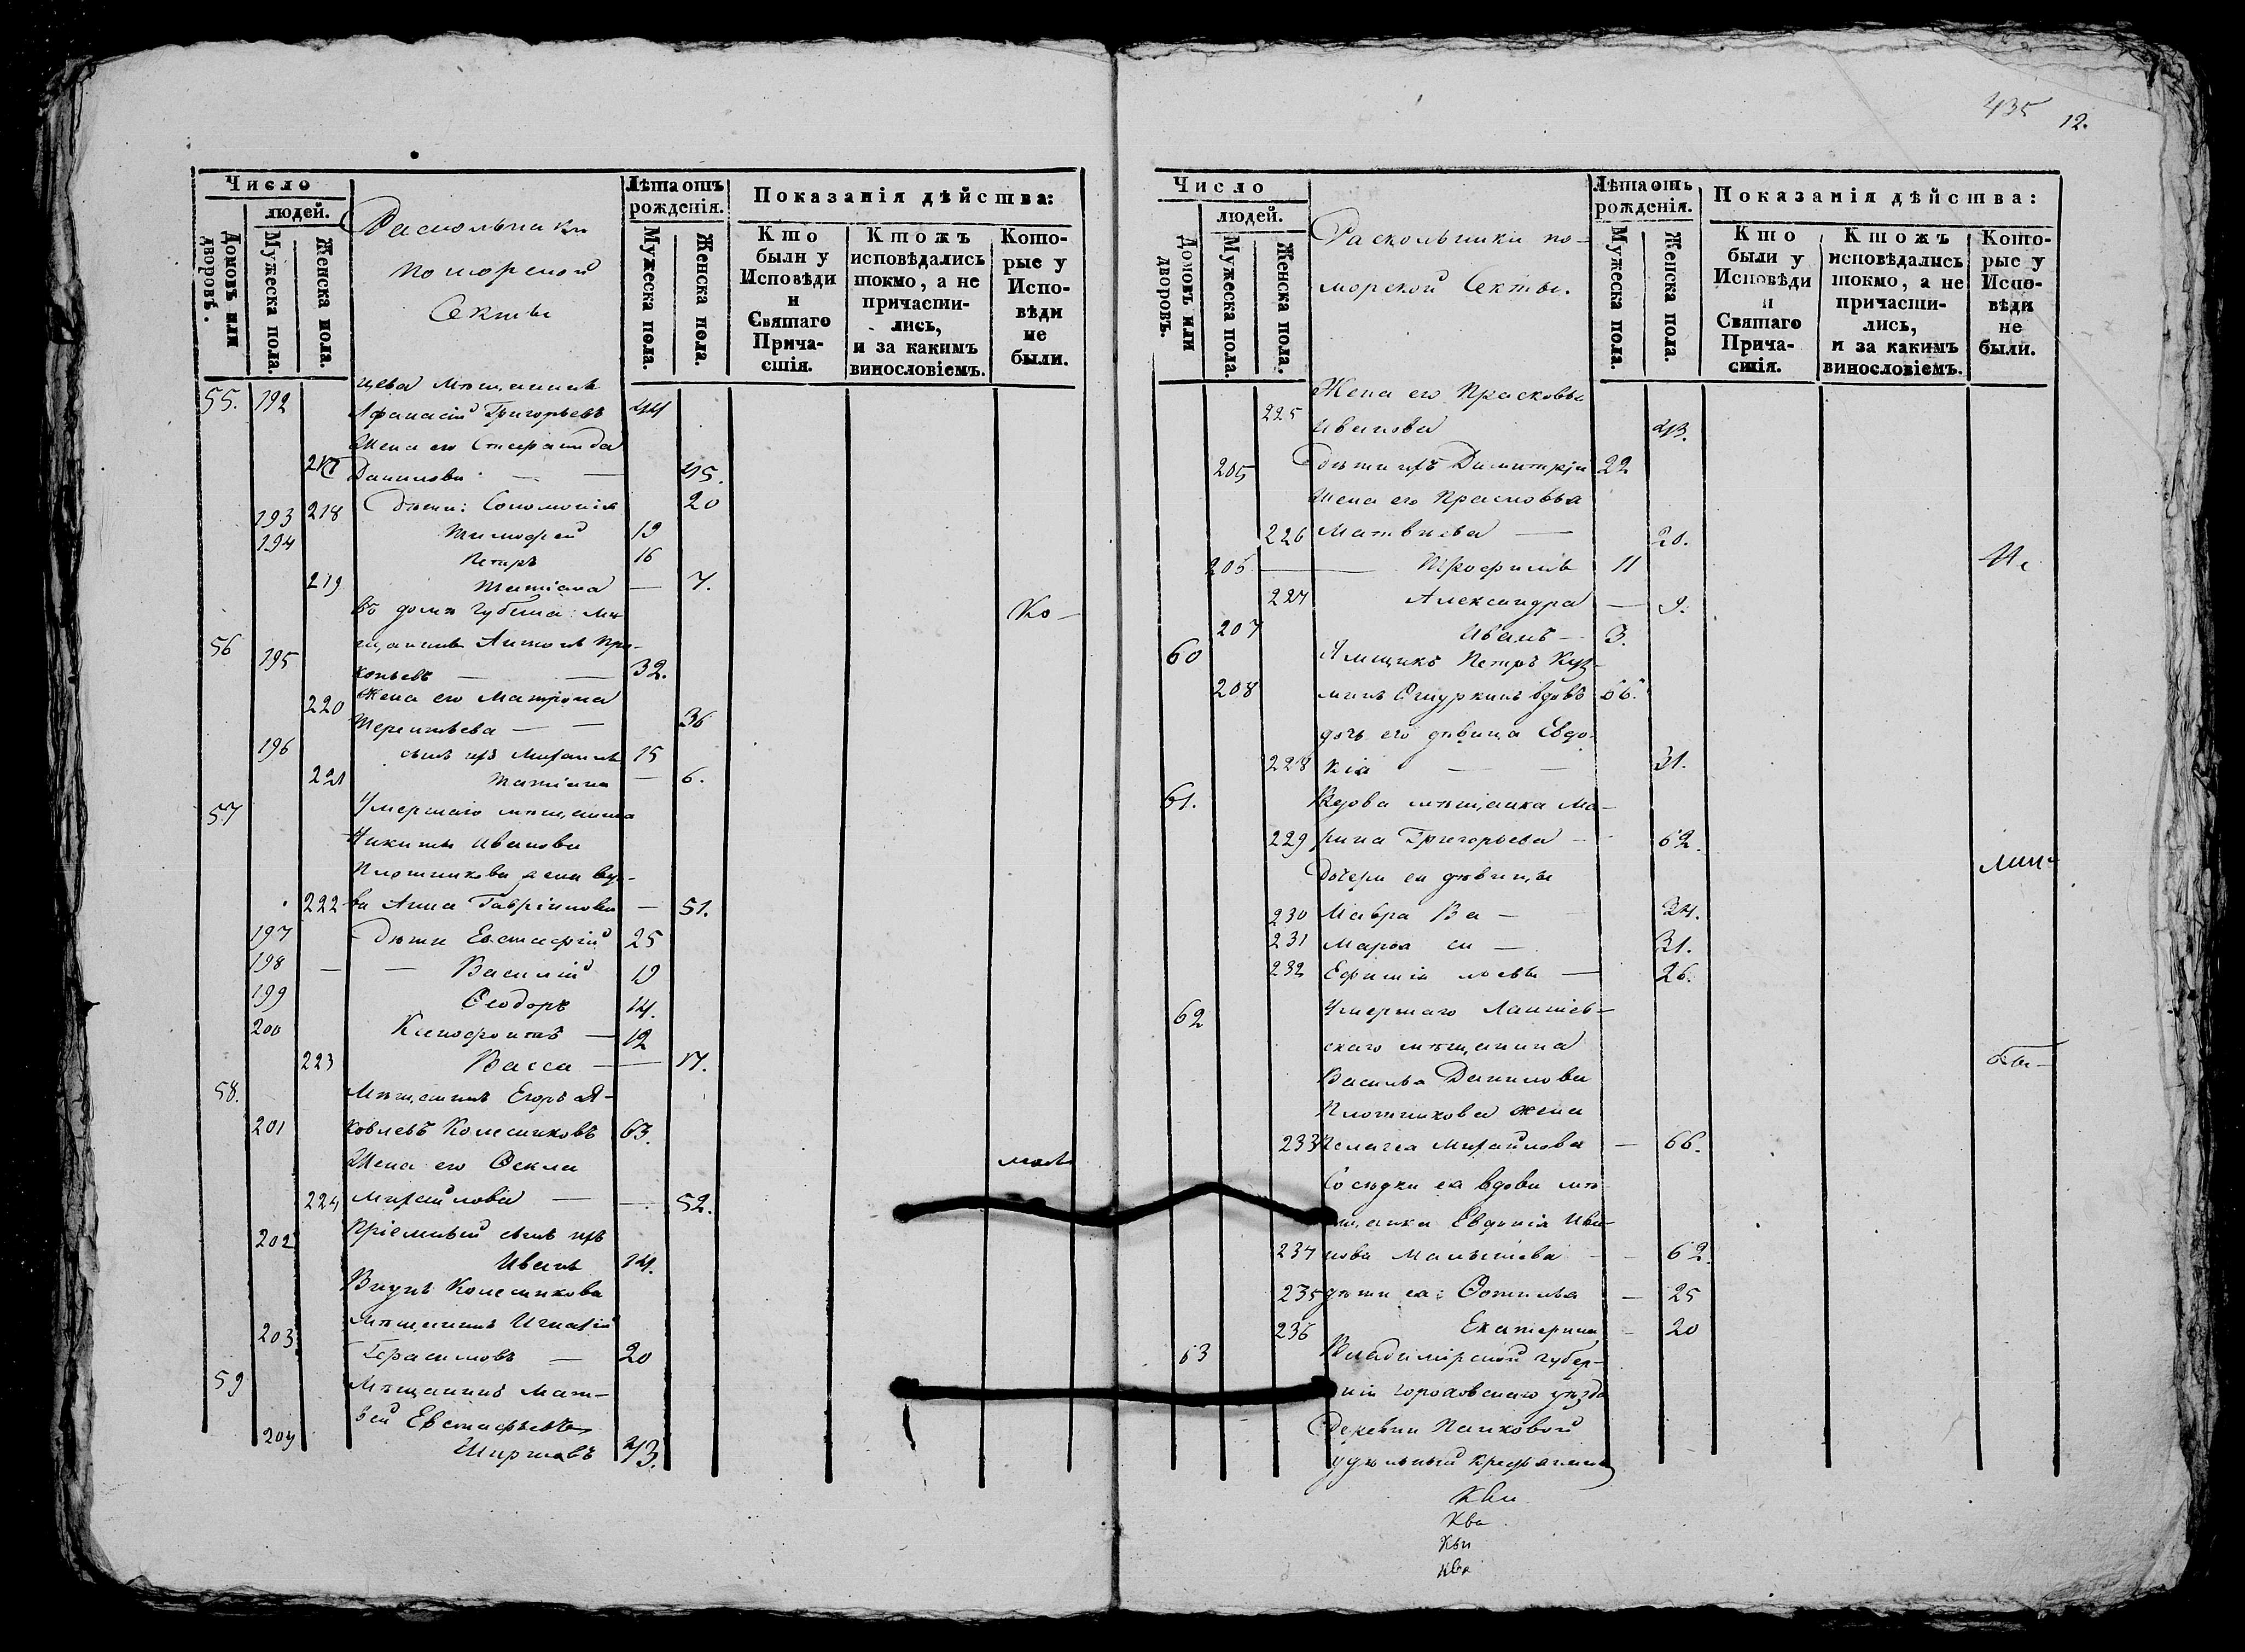 435
12.
Число
людей.
Домовъ или дворовъ.
Мужеска пола.
Женска пола.
Раскольники
поморской
Секты
Лѣта отъ рожденія.
Мужеска пола.
Женска пола.
Показанія дѣйства:
Кто были у Исповѣди и Святаго Прича-стія.
Ктожъ исповѣдались токмо, а не причасти-лись, и за какимъ винословіемъ.
Кото-рые у Испо-вѣди не были.
цева Мѣщанинъ
55. 192 Афанасій Григорьевъ 44
Жена его Степанида
217 Данилова — — 45.
218 дѣти: Соломонія 20
193 Тимофей 19
194 Петръ 16
219 Татіана — 7.
въ домѣ Губина: мѣ
Ко-
56 щанинъ Антонъ Про-
195 копьевъ — — 32.
Жена его Матрона
220 Терентьева — — 36
196 сынъ ихъ Михаилъ 15
221 Татіана — 6.
57 Умершаго мѣщанина
Никиты Иванова
Плотникова жена вдо-
222 ва Анна Гавріилова — 51.
197 Дѣти Евстафій 25
198 — — Василій 19
199 Ѳеодоръ 14.
200 Ксенофонтъ — 12
223 Васса — 17.
58. Мѣщанинъ Егоръ Я-
201 ковлевъ Колесниковъ 63.
Жена его Ѳекла
224 Михайлова — — 52.
202 Пріемный сынъ ихъ
Иванъ 14.
Внукъ Колесникова
203 Мѣщанинъ Игнатій
Герасимовъ — 20
59 Мѣщанинъ Мат-
вей Евстафьевъ
204 Ширшовъ 43.
Число
людей.
Домовъ или дворовъ.
Мужеска пола.
Женска пола.
Раскольники по-
морской Секты.
Лѣта отъ рожденія.
Мужеска пола.
Женска пола.
Показанія дѣйства:
Кто были у Исповѣди и Святаго Прича-стія.
Ктожъ исповѣдались токмо, а не причасти-лись, и за какимъ винословіемъ.
Кото-рые у Испо-вѣди не были.
Жена его Прасковья
225 Иванова 43.
205 Дѣти ихъ Димитрій 22
Жена его Прасковья
226 Матвѣева — 20.
205 — — Трофимъ 11
227 Александра — 9.
207 Иванъ — 3.
60 Ямщикъ Петръ Куз-
208 минъ Ошуркинъ вдовъ 66.
дочь его дѣвица Евдо-
228 кія — — 31.
61. Вдова мѣщанка Ма-
229 рина Григорьева — 62.
Дочери ея дѣвицы
230 Мавра Ва — 34.
231 Марѳа си — 31.
232 Ефимія льевы — 26.
62 Умершаго Лаишев-
скаго мѣщанина
Василья Данилова
Плотникова жена
233 Пелагея Михайлова — 66.
Сосѣдки ея вдова мѣ-
щанка Евдокія Ива-
234 нова Малышева — — 62.
235 дѣти ея: Фотинья — 25
236 Екатерина — 20
63 Владимірской губер-
ніи гороховскаго уѣзда
Деревни Палковой
удѣльный крестьянинъ